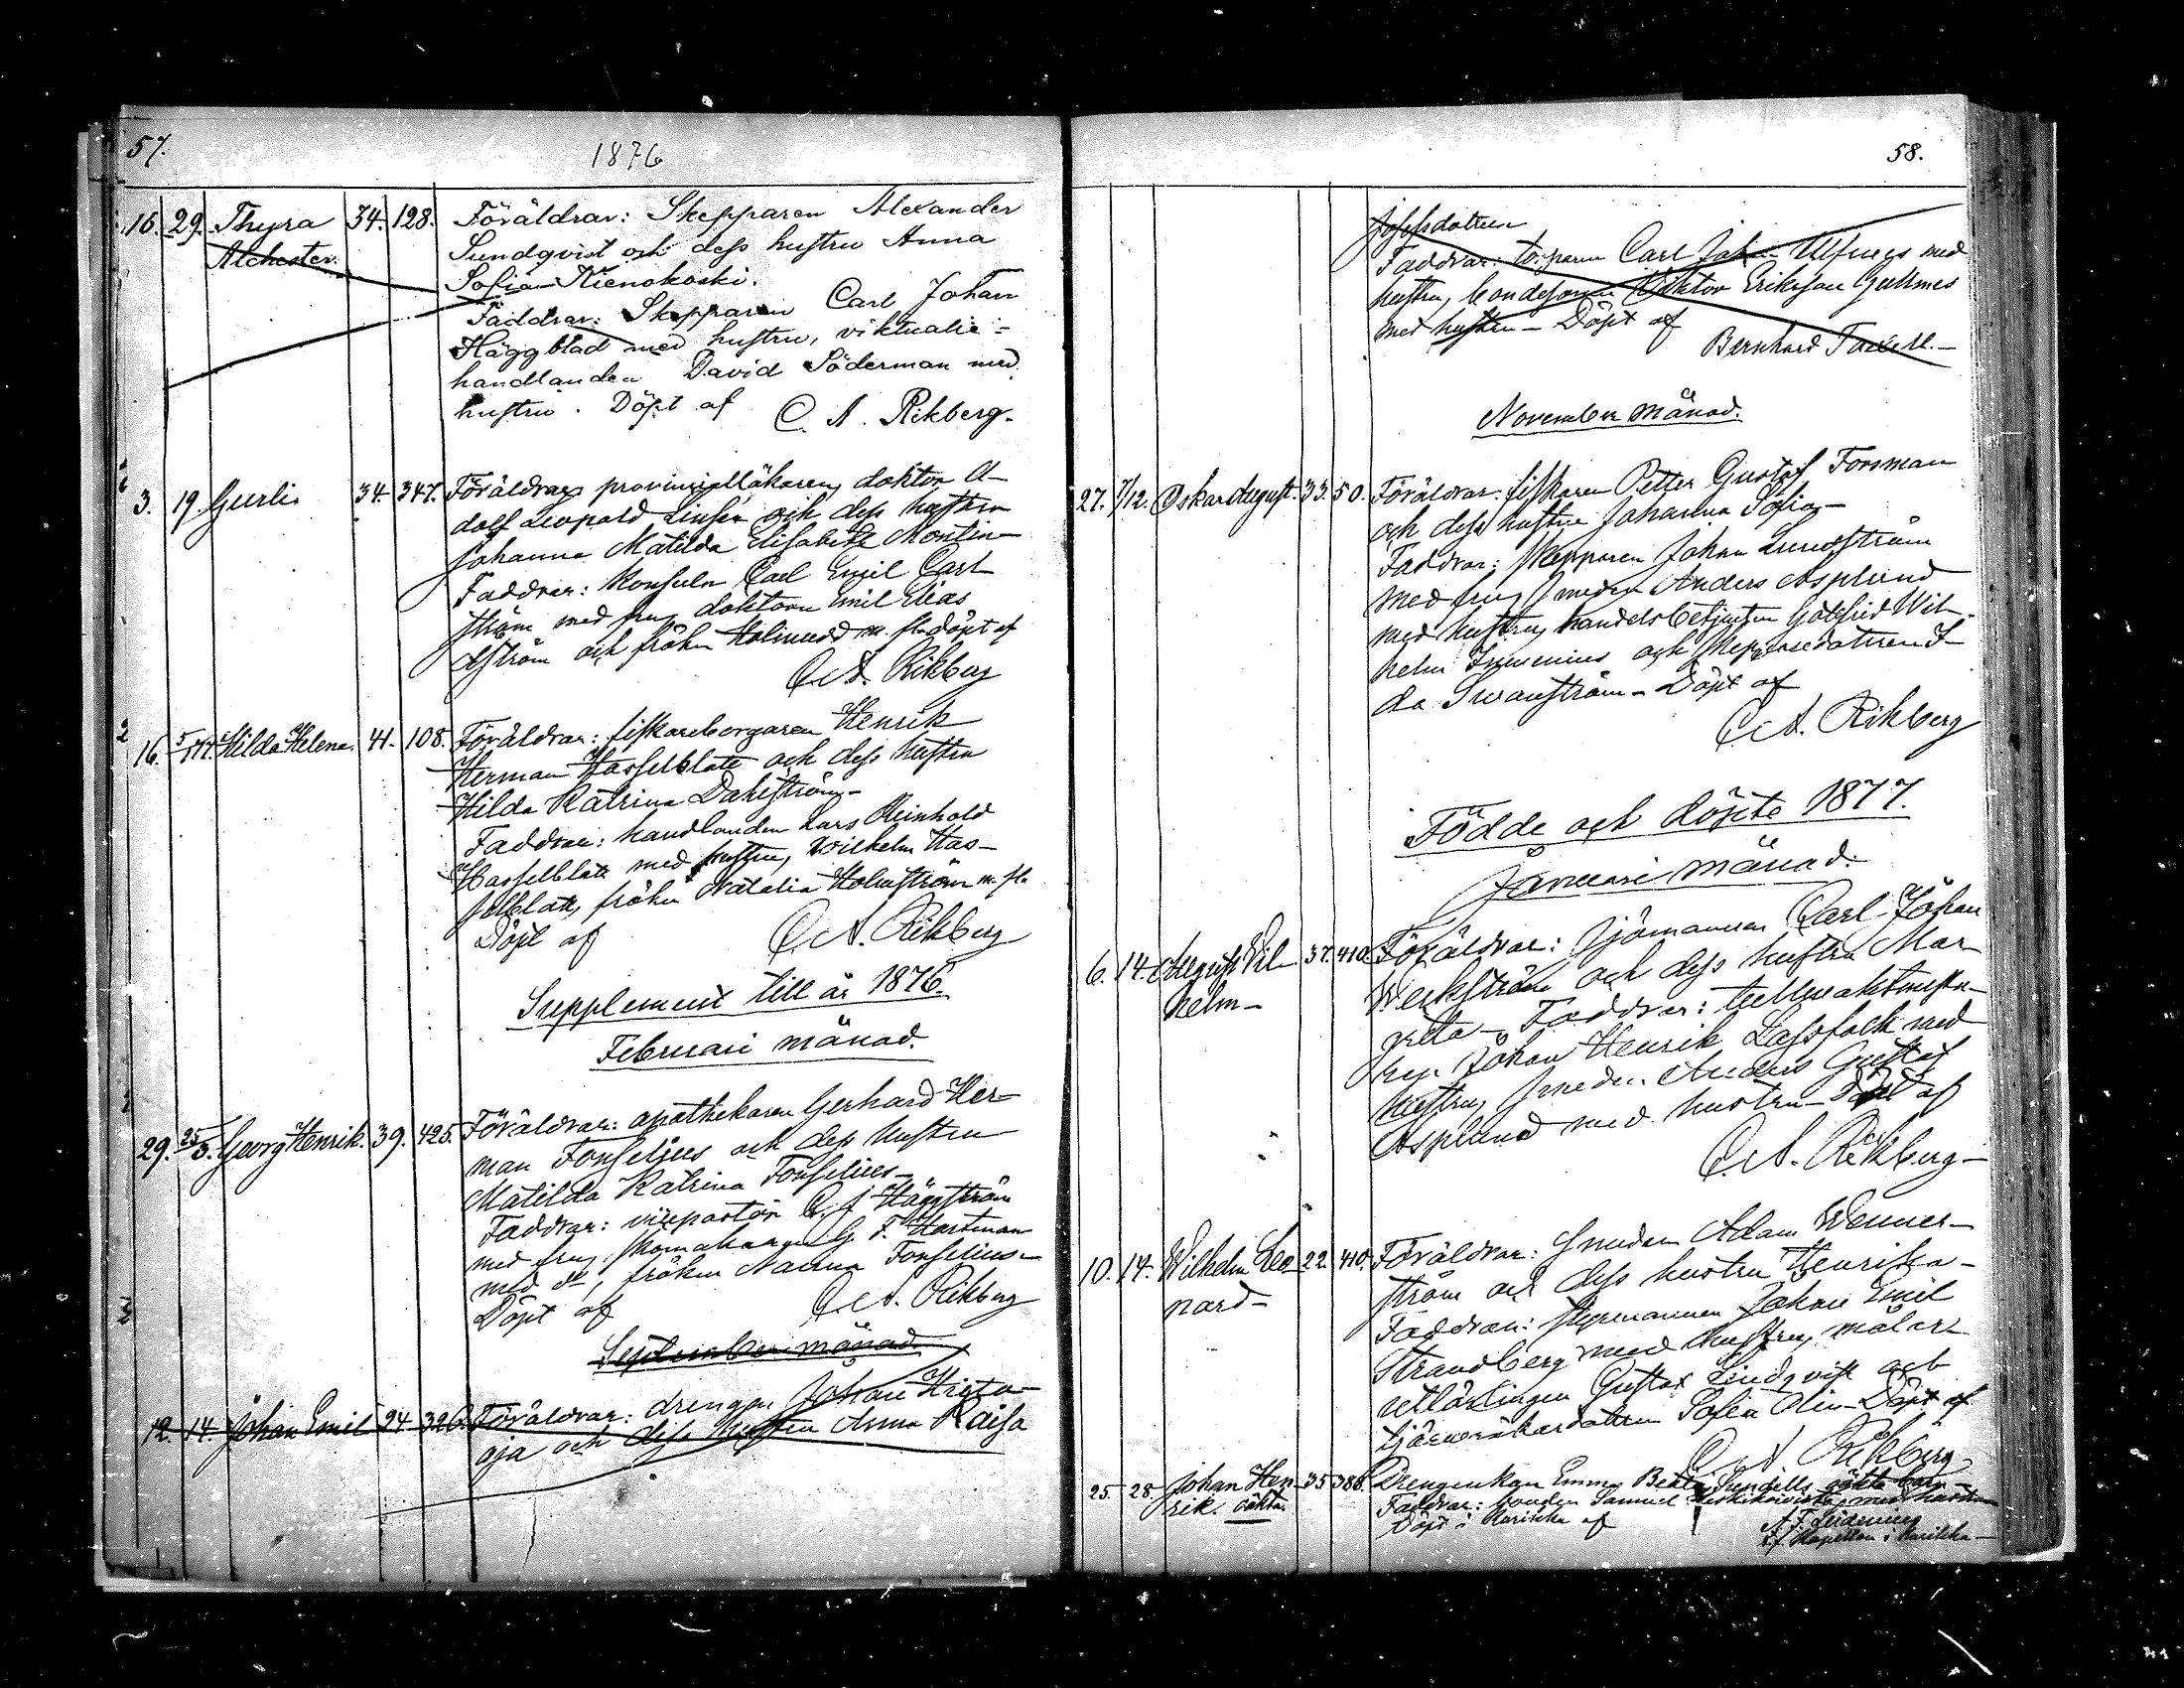 57.
1876
16. 29. Thyra 34. 128. Föräldrar: Skepparen Alexander
Alchester. Sundqvist och dess hustru Anna
Sofia Kienokoski.
Faddrar: Skepparen Carl Johan
Häggblad med hustru, viktualie-
handlanden David Söderman med
hustru. Döpt af C. A. Rikberg.
3. 19. Gurli 34. 347. Föräldrar: provincialläkaren, doktor A-
dolf Leopold Linsén och dess hustru
Johanna Matilda Elisabeth Montin
Faddrar: Konsuln Carl Emil Carl
ström med fru, doktorn Emil Elias
ström och fröken m. fl. döpt af
C. A. Rikberg
16. 5/11. Hilda Helena. 41. 108. Föräldrar: fiskareborgaren Henrik
Herman Hasselblatt och dess hustru
Hilda Katrina Dahlström.
Faddrar: handlanden Lars Reinhold
Hasselblatt med hustru, Wilhelm Has-
selblatt, fröken Natalia Holmström m. fl.
Döpt af C. A. Rikberg
Supplement till år 1876.
Februari månad.
29. 25/3. Georg Henrik. 39. 425. Föräldrar: apothekaren Gerhard Her-
man Fonselius och dess hustru
Matilda Katrina Fonselius
Faddrar: vicepastor C. J. Häggström
med fru, skomakaren G. F. Hartman
med d:o, fröken Nanna Fonselius
Döpt af C. A. Rikberg
September månad.
12. 14. Johan Emil 24. 326. Föräldrar: drengen Johan
oja och dess hustru Anna Kaisa
58.
Josefsdotter
Faddrar: torparen Carl Johan Ulfves med
hustru, bondesonen Viktor Eriksson Gullnes
med hustru – Döpt af
Bernhard
November månad.
27. 7/12. Oskar August. 33. 50. Föräldrar: fiskaren Petter Gustaf Forsman
och dess hustru Johanna Sofia –
Faddrar: skepparen Johan Lundström
med fru, smeden Anders Asplund
med hustru, handelsbetjenten Gotfrid Wil-
helm och skepparedottren I-
da Swanström – Döpt af
C. A. Rikberg
Födde och döpte 1877.
Januari månad.
6. 14. August Vil- 37. 410. Föräldrar: sjömannen Carl Johan
helm – Werkström och dess hustru Mar-
greta – Faddrar: tullvaktmästa-
ren Johan Henrik Lassfolk med
hustru, smeden Anders Gustaf
Asplund med hustru – Döpt af
C. A. Rikberg –
10. 14. Wilhelm Leo- 22. 410. Föräldrar: Smeden Adam Wenner-
nard – ström och dess hustru Henrika –
Faddrar: styrmannen Johan Emil
Strandberg med hustru, målare-
lärlingen Gustaf Lindqvist och
sofia Olin – Döpt af
C. A. Rikberg
25. 28. Johan Hen- 35. 388. Drengenkan Emma Sundells oäkta barn
rik. oäkta. Faddrar: bonden Samuel med hustru
Döpt i Karijoki af